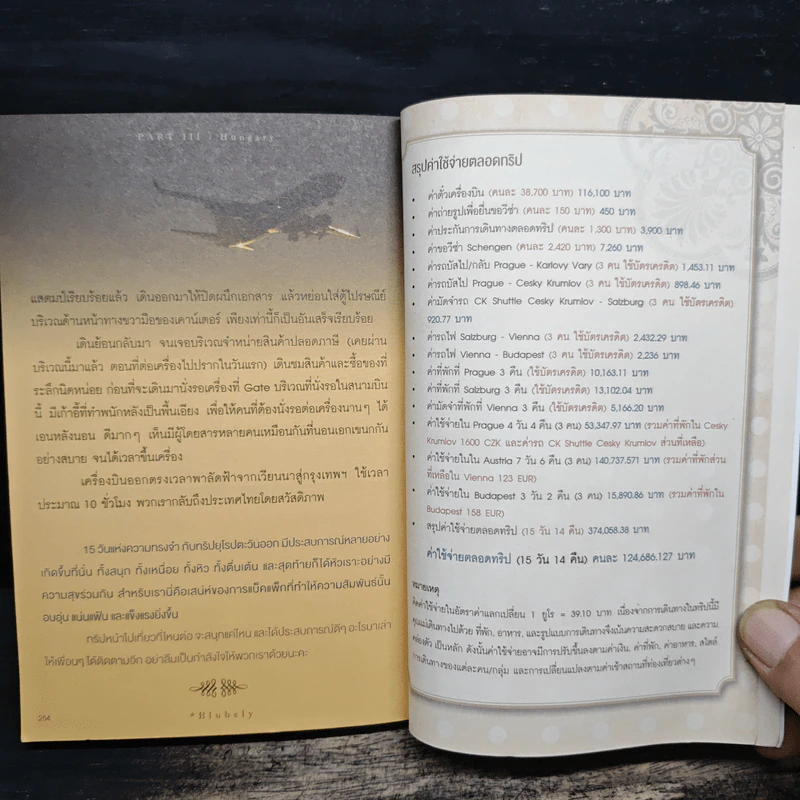 PART III : Hungary
แสตมป์เรียบร้อยแล้ว เดินออกมาให้ปิดผนึกเอกสาร แล้วหย่อนใส่ตู้ไปรษณีย์
บริเวณด้านหน้าทางขวามือของเคาน์เตอร์ เพียงเท่านี้ก็เป็นอันเสร็จเรียบร้อย
เดินย้อนกลับมา จนเจอบริเวณจำหน่ายสินค้าปลอดภาษี (เคยผ่าน
บริเวณนี้มาแล้ว ตอนที่ต่อเครื่องไปปรากในวันแรก) เดินชมสินค้าและซื้อของที่
ระลึกนิดหน่อย ก่อนที่จะเดินมานั่งรอเครื่องที่ Gate บริเวณที่นั่งรอในสนามบิน
นี้ มีเก้าอี้ที่ทำพนักหลังเป็นพื้นเอียง เพื่อให้คนที่ต้องนั่งรอต่อเครื่องนานๆ ได้
เอนหลังนอน ดีมากๆ เห็นมีผู้โดยสารหลายคนเหมือนกันที่นอนเอกเขนกกัน
อย่างสบาย จนได้เวลาขึ้นเครื่อง
เครื่องบินออกตรงเวลาพาลัดฟ้าจากเวียนนาสู่กรุงเทพฯ ใช้เวลา
ประมาณ 10 ชั่วโมง พวกเรากลับถึงประเทศไทยโดยสวัสดิภาพ
15 วันแห่งความทรงจำ กับทริปยุโรปตะวันออก มีประสบการณ์หลายอย่าง
เกิดขึ้นที่นั่น ทั้งสนุก ทั้งเหนื่อย ทั้งหิว ทั้งตื่นเต้น และสุดท้ายก็ได้หัวเราะอย่างมี
ความสุขร่วมกัน สำหรับเรานี่คือเสน่ห์ของการแบ็คแพ็กที่ทำให้ความสัมพันธ์นั้น
อบอุ่น แน่นแฟ้น และแข็งแรงยิ่งขึ้น
ทริปหน้าไปเที่ยวที่ไหนต่อ จะสนุกแค่ไหน และได้ประสบการณ์ดีๆ อะไรมาเล่า
ให้เพื่อนๆ ได้ติดตามอีก อย่าลืมเป็นกำลังใจให้พวกเราด้วยนะคะ
*Blubely
254
สรุปค่าใช้จ่ายตลอดทริป
• ค่าตั๋วเครื่องบิน (คนละ 38,700 บาท) 116,100 บาท
• ค่าถ่ายรูปเพื่อยื่นขอวีซ่า (คนละ 150 บาท) 450 บาท
• ค่าประกันการเดินทางตลอดทริป (คนละ 1,300 บาท) 3,900 บาท
• ค่าขอวีซ่า Schengen (คนละ 2,420 บาท) 7,260 บาท
• ค่ารถบัสไป/กลับ Prague - Karlovy Vary (3 คน ใช้บัตรเครดิต) 1,453.11 บาท
• ค่ารถบัสไป Prague - Cesky Krumlov (3 คน ใช้บัตรเครดิต) 898.46 บาท
• ค่ามัดจำรถ CK Shuttle Cesky Krumlov - Salzburg (3 คน ใช้บัตรเครดิต)
920.77 บาท
• ค่ารถไฟ Salzburg - Vienna (3 คน ใช้บัตรเครดิต) 2,432.29 บาท
• ค่ารถไฟ Vienna - Budapest (3 คน ใช้บัตรเครดิต) 2,236 บาท
• ค่าที่พักที่ Prague 3 คืน (ใช้บัตรเครดิต) 10,163.11 บาท
• ค่าที่พักที่ Salzburg 3 คืน (ใช้บัตรเครดิต) 13,102.04 บาท
• ค่ามัดจำที่พักที่ Vienna 3 คืน (ใช้บัตรเครดิต) 5,166.20 บาท
• ค่าใช้จ่ายใน Prague 7 วัน 4 คืน (3 คน) 53,347.97 บาท (รวมค่าที่พักใน Cesky
Krumlov 1600 CZK และค่ารถ CK Shuttle Cesky Krumlov ส่วนที่เหลือ)
• ค่าใช้จ่ายในใน Austria 7 วัน 6 คืน (3 คน) 140,737.571 บาท (รวมค่าที่พักส่วน
ที่เหลือใน Vienna 123 EUR)
• ค่าใช้จ่ายใน Budapest 3 วัน 2 คืน (3 คน) 15,890.86 บาท (รวมค่าที่พักใน
Budapest 158 EUR)
• สรุปค่าใช้จ่ายตลอดทริป (15 วัน 14 คืน) 374,058.38 บาท
ค่าใช้จ่ายตลอดทริป (15 วัน 14 คืน) คนละ 124,686.127 บาท
หมายเหตุ
คิดค่าใช้จ่ายในอัตราค่าแลกเปลี่ยน 1 ยูโร = 39.10 บาท เนื่องจากการเดินทางในทริปนี้มี
คุณแม่เดินทางไปด้วย ที่พัก, อาหาร, และรูปแบบการเดินทางจึงเน้นความสะดวกสบาย และความ
คล่องตัว เป็นหลัก ดังนั้นค่าใช้จ่ายอาจมีการปรับขึ้นลงตามค่าเงิน, ค่าที่พัก, ค่าอาหาร, สไตล์
การเดินทางของแต่ละคน/กลุ่ม และการเปลี่ยนแปลงตามค่าเข้าสถานที่ท่องเที่ยวต่างๆ